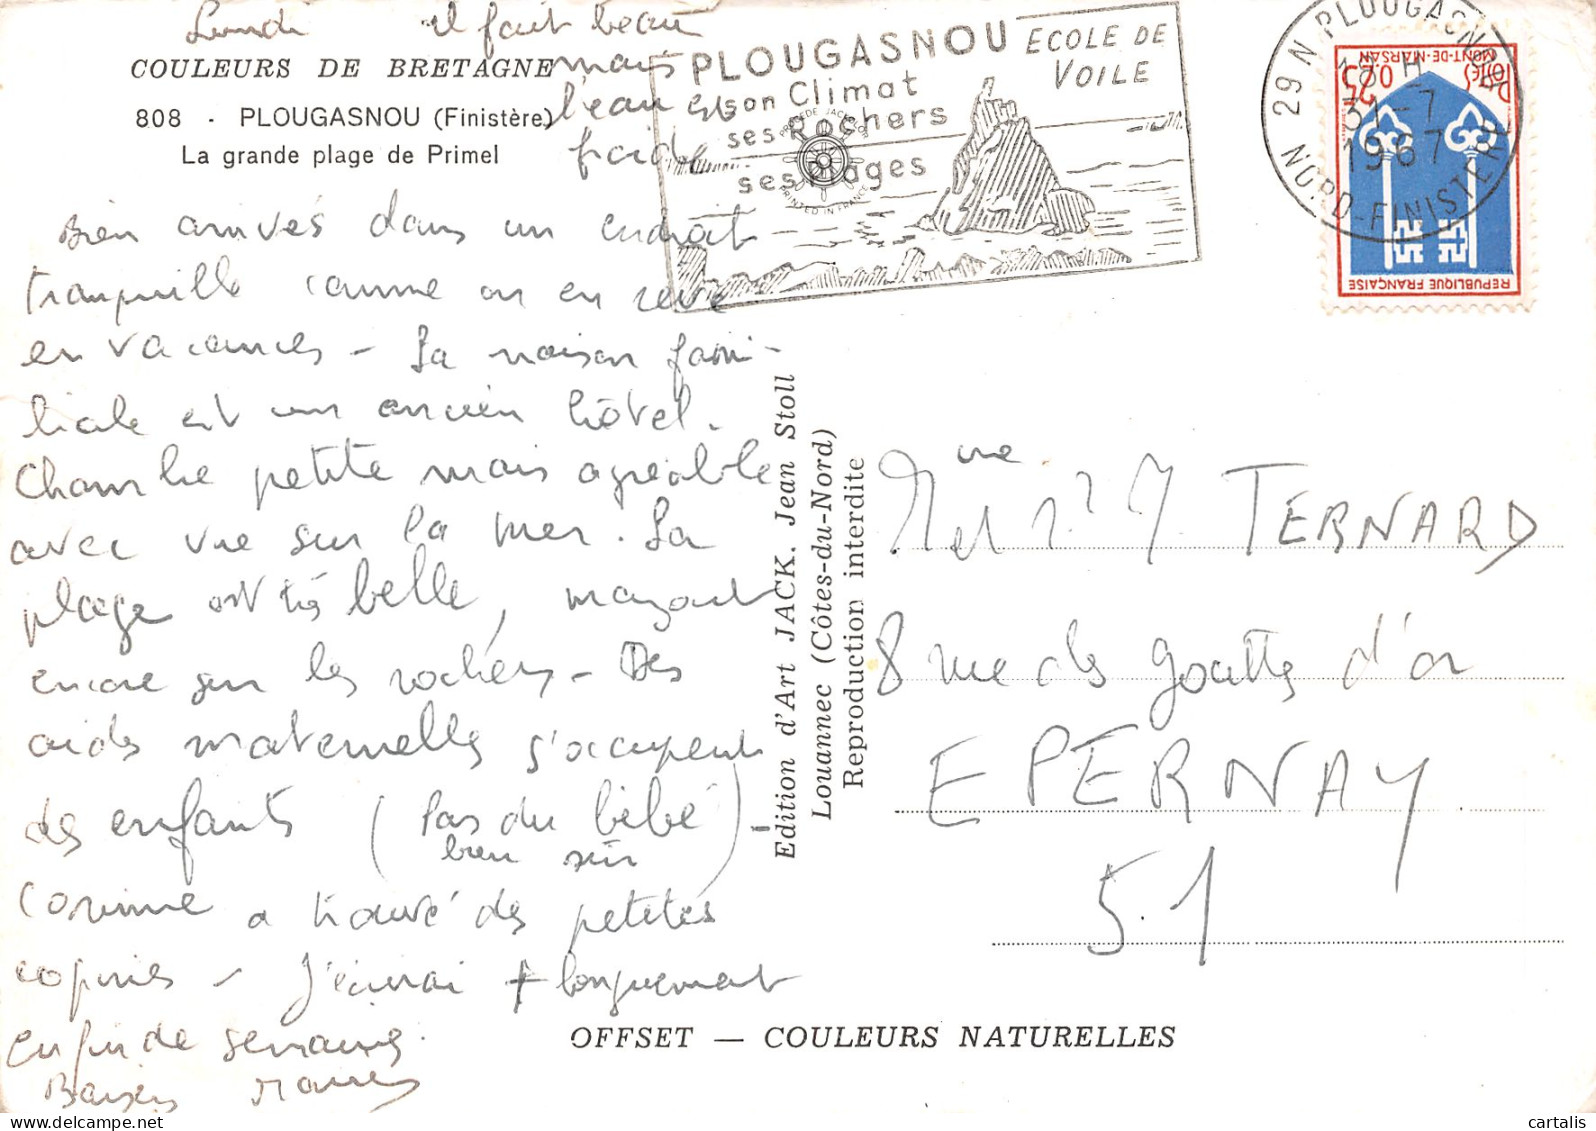 Lundi il fait beau
mais
l'eau est
froide
COULEURS DE BRETAGNE
808 - PLOUGASNOU (Finistère)
La grande plage de Primel
Bien arrivés dans un endroit
tranquille comme on en rêve
en vacances - La maison fami-
liale est un ancien hôtel.
Chambre petite mais agréable
avec vue sur la mer. La
plage est très belle, mazout
encore sur les rochers - Des
aides maternelles s'occupent
des enfants (Pas du bébé) -
bien sûr
Corinne a trouvé des petites
copines - J'écrirai + longuement
en fin de semaine.
Baisers
PLOUGASNOU
son Climat
ses Rochers
ses Plages
ECOLE DE
VOILE
PROCÉDÉ JACK COLOR
PRINTED IN FRANCE
29 N PLOUGASNOU
NORD-FINISTERE
18 H
31-7
1967
0,25
MONT-DE-MARSAN
REPUBLIQUE FRANÇAISE
Edition d'Art JACK. Jean Stoll
Louannec (Côtes-du-Nord)
Reproduction interdite
TERNARD
8 rue des gouttes d'or
EPERNAY
51
OFFSET — COULEURS NATURELLES
cartalis
www.delcampe.net